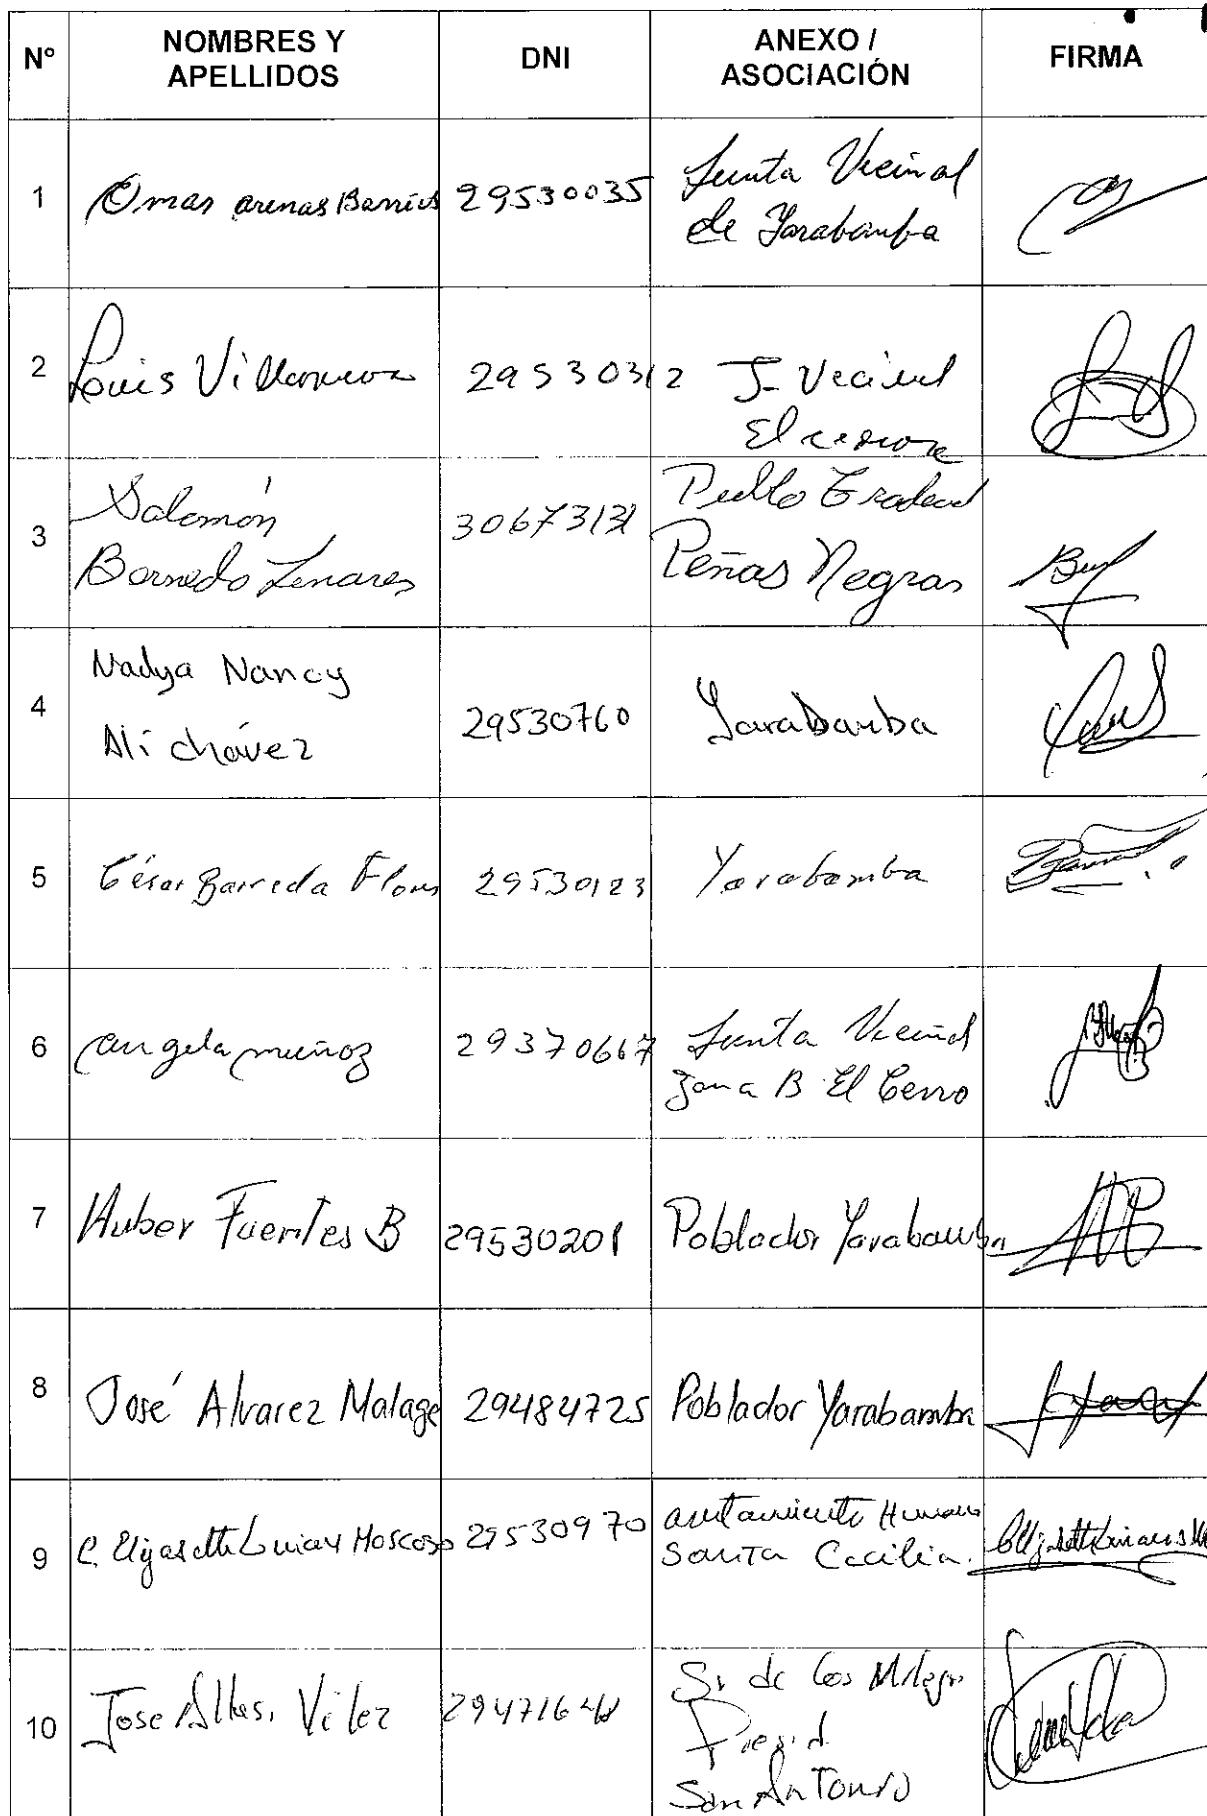 Nº NOMBRES Y APELLIDOS DNI ANEXO / ASOCIACIÓN FIRMA
1 Omar arenas Barrios 29530035 Junta Vecinal
de Yarabamba
2 Luis Villanueva 29530312 J. Vecinal
El
3 Salomón
Bornedo Linares 3067313 Pueblo
Peñas Negras
4 Nadya Nancy
Ali chávez 29530760 Yarabamba
5 César Barreda Flores 29530123 Yarabamba
6 angela muñoz 29370667 Junta Vecinal
Zona B El Cerro
7 Huber Fuentes B 29530201 Poblador Yarabamba
8 José Alvarez Malaga 29484725 Poblador Yarabamba
9 C. Elizabeth Linares Moscoso 29530970 Humano
Santa Cecilia.
10 Jose Vilez Sr de los Milagros
San Antonio